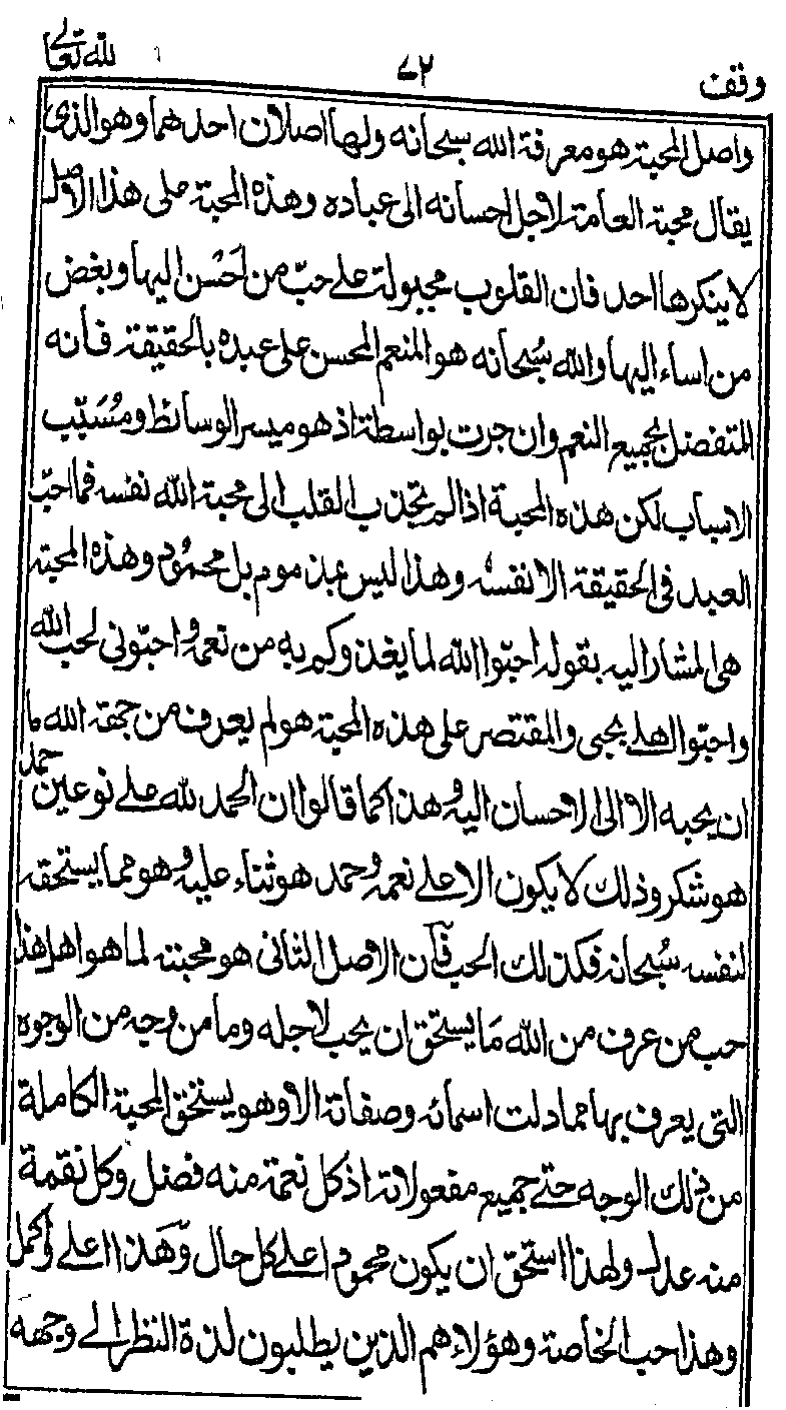 وقف ٧٢ لله تعالى
واصل المحبة هو معرفة الله سبحانه ولها اصلان احدهما وهو الذى
يقال محبة العامة لاجل احسانه الى عباده وهذه المحبة على هذا الاصل
لا ينكرها احد فان القلوب مجبولة على حبّ من احسن اليها وبغض
من اساء اليها والله سُبحانه هو المنعم المحسن على عبده بالحقيقة فانه
المتفضل بجميع النعم وان جرت بواسطة اذ هو ميسر الوسائط ومُسَبّب
الاسباب لكن هذه المحبة اذا لم تجذب القلب الى محبة الله نفسه فما احبّ
العبد فى الحقيقة الا نفسه وهذا ليس بمذموم بل محمُود وهذه المحبة
هى المشار اليه بقوله احبّوا الله لما يغذوكم به من نعمه و احبّونى لحب الله
واحبّوا اهلى بحبى والمقتصر على هذه المحبة هو لم يعرف من جهة الله ما
ان يحبه الا الى الاحسان اليه وهذا كما قالوا ان الحمد لله على نوعين حمد
هو شكر وذلك لا يكون الا على نعمه وحمد هو ثناء عليه وهو مما يستحقه
لنفسه سُبحانه فكذلك الحب فآن الاصل الثانى هو محبته لما هو اهل هذا
حب من عرف من الله مَا يستحق ان يحب لاجله وما من وجه من الوجوه
التى يعرف بها مما دلت اسمائه وصفاته الا وهو يستحق المحبة الكاملة
من ذلك الوجه حتى جميع مفعولاته اذ كل نعمة منه فضل وكل نقمة
منه عدل ولهذا استحق ان يكون محمودا على كل حال وّهَذا اعلى واكمل
وهذا حب الخاصة وهؤلاء هم الذين يطلبون لذة النظر الى وجهه